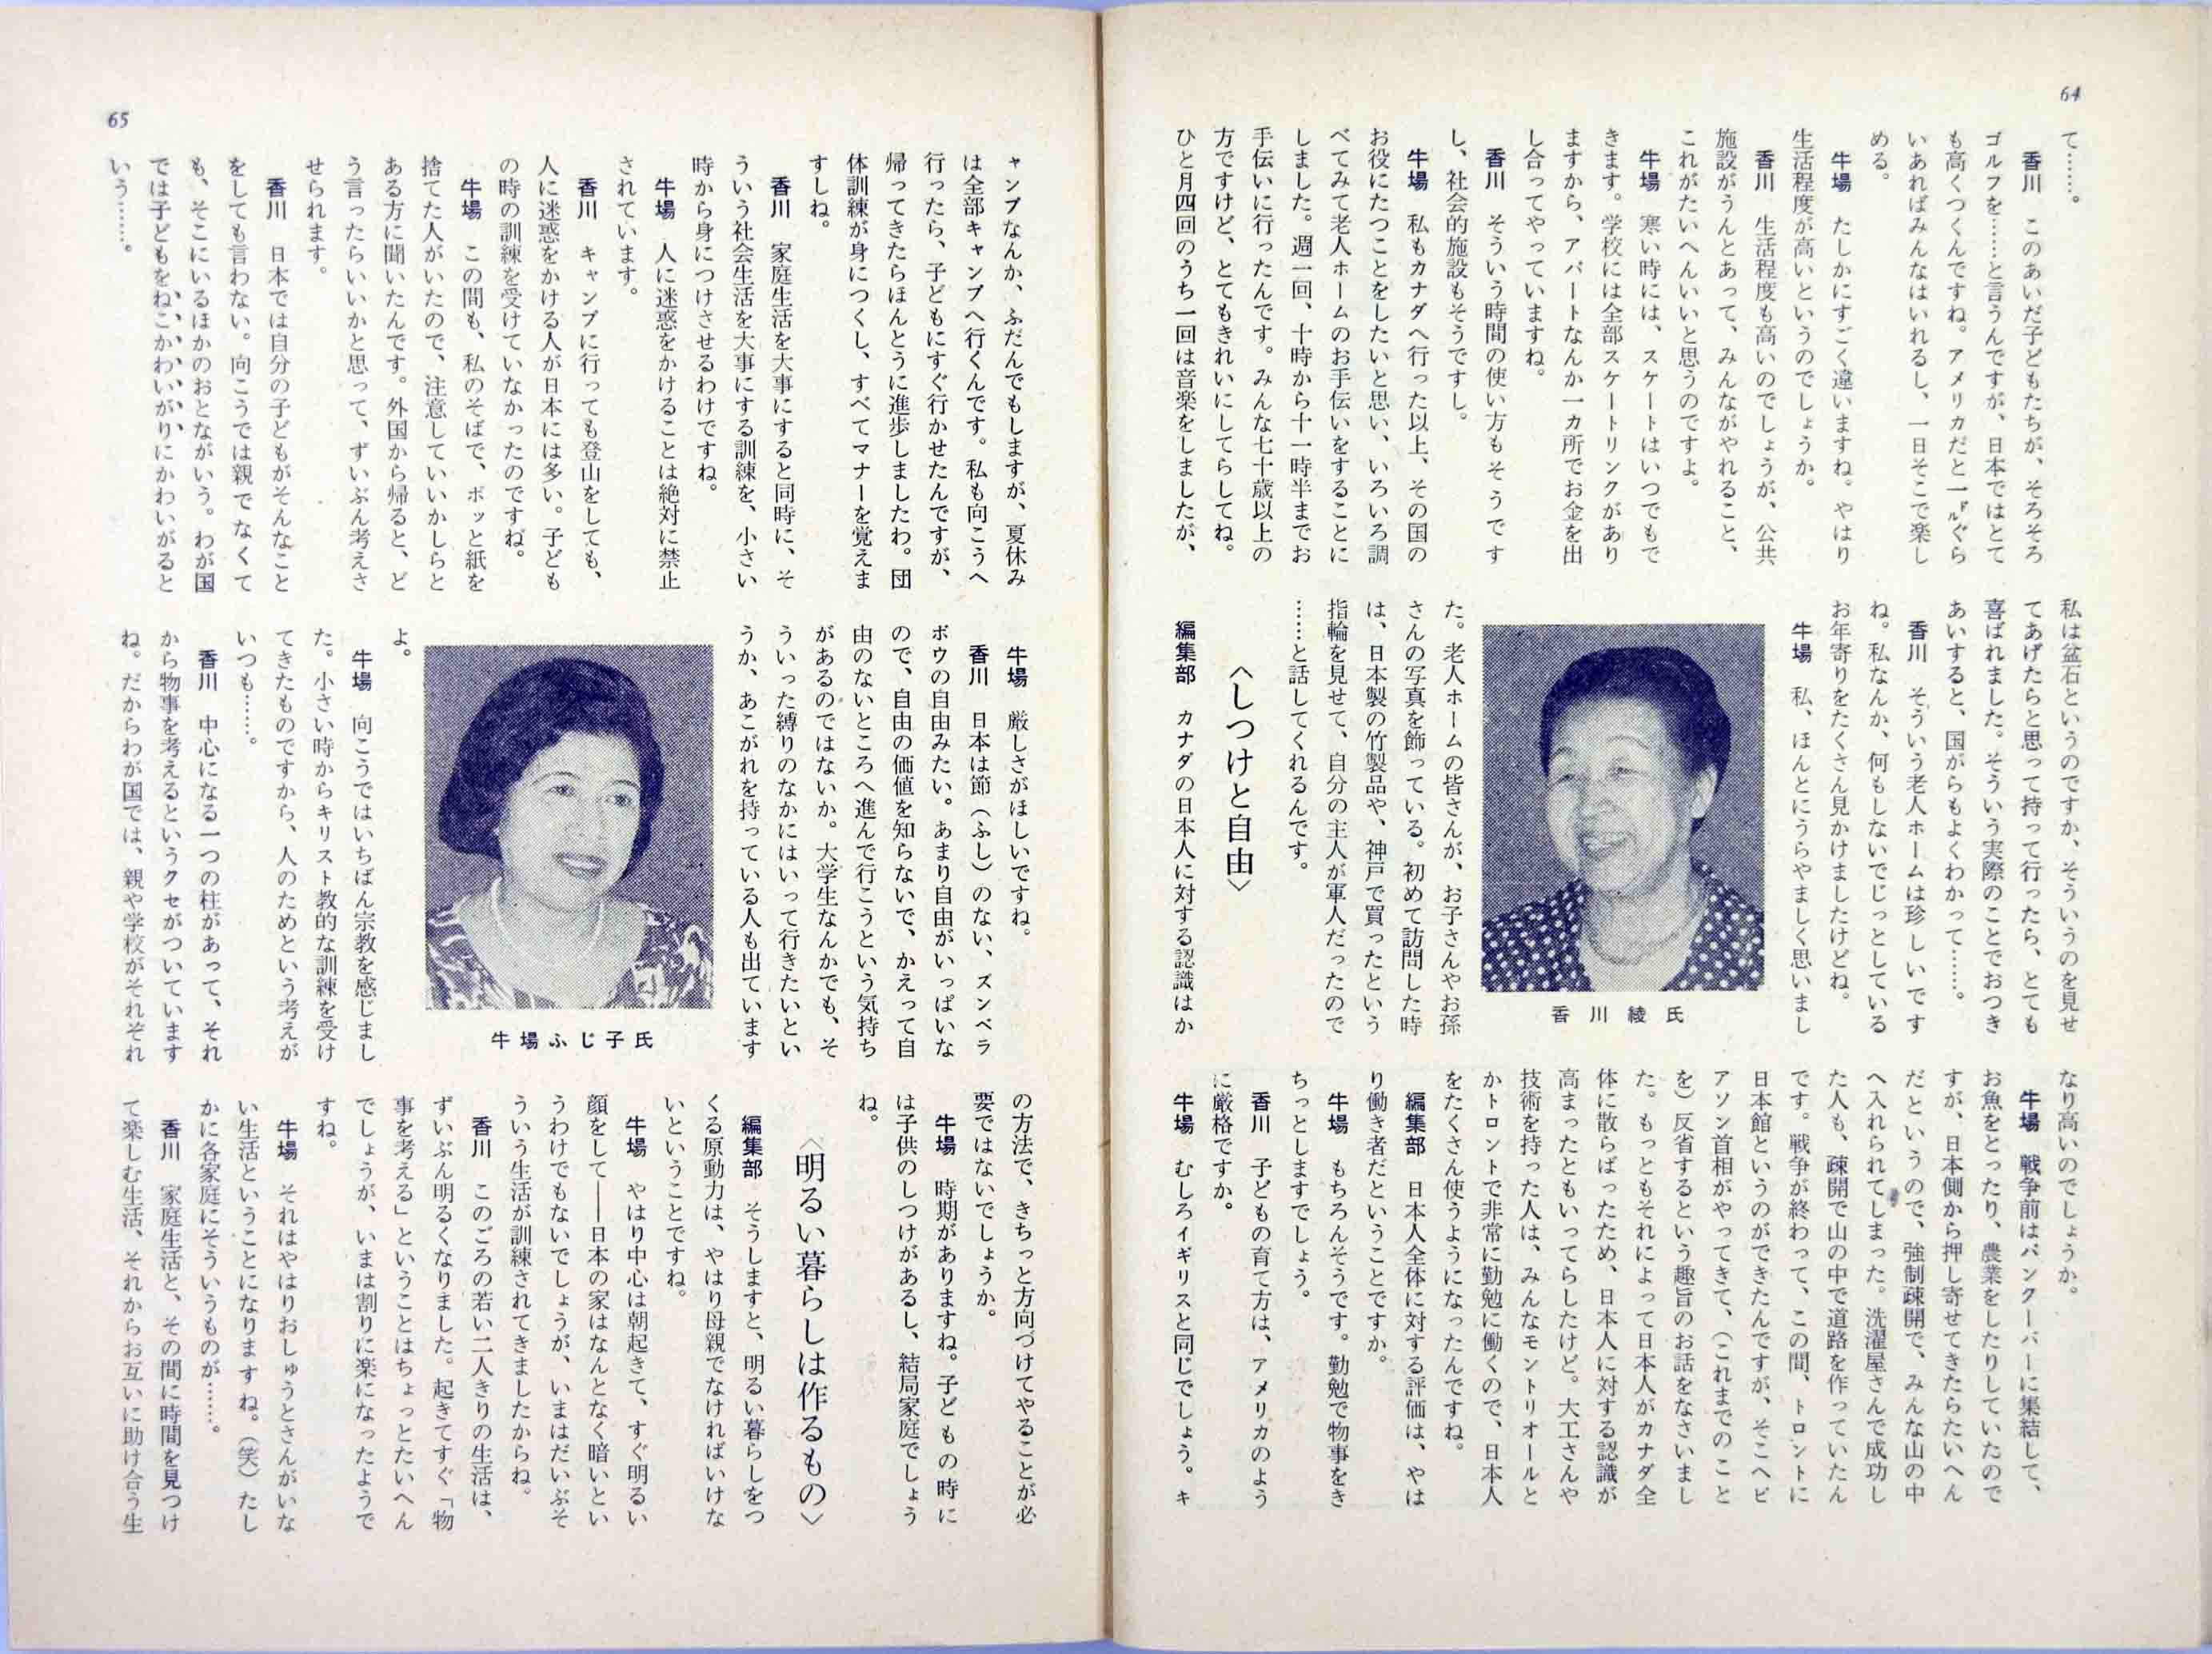 64
て……。
香川　このあいだ子どもたちが、そろそろ
ゴルフを……と言うんですが、日本ではとて
も高くつくんですね。アメリカだと一ドルぐら
いあればみんなはいれるし、一日そこで楽し
める。
牛場　たしかにすごく違いますね。やはり
生活程度が高いというのでしょうか。
香川　生活程度も高いのでしょうが、公共
施設がうんとあって、みんながやれること、
これがたいへんいいと思うのですよ。
牛場　寒い時には、スケートはいつでもで
きます。学校には全部スケートリンクがあり
ますから、アパートなんか一カ所でお金を出
し合ってやっていますね。
香川　そういう時間の使い方もそうです
し、社会的施設もそうですし。
牛場　私もカナダへ行った以上、その国の
お役にたつことをしたいと思い、いろいろ調
べてみて老人ホームのお手伝いをすることに
しました。週一回、十時から十一時半までお
手伝いに行ったんです。みんな七十歳以上の
方ですけど、とてもきれいにしてらしてね。
ひと月四回のうち一回は音楽をしましたが、
私は盆石というのですか、そういうのを見せ
てあげたらと思って持って行ったら、とても
喜ばれました。そういう実際のことでおつき
あいすると、国がらもよくわかって……。
香川　そういう老人ホームは珍しいです
ね。私なんか、何もしないでじっとしている
お年寄りをたくさん見かけましたけどね。
牛場　私、ほんとにうらやましく思いまし
香川綾氏
た。老人ホームの皆さんが、お子さんやお孫
さんの写真を飾っている。初めて訪問した時
は、日本製の竹製品や、神戸で買ったという
指輪を見せて、自分の主人が軍人だったので
……と話してくれるんです。
〈しつけと自由〉
編集部　カナダの日本人に対する認識はか
なり高いのでしょうか。
牛場　戦争前はバンクーバーに集結して、
お魚をとったり、農業をしたりしていたので
すが、日本側から押し寄せてきたらたいへん
だというので、強制疎開で、みんな山の中
へ入れられてしまった。洗濯屋さんで成功し
た人も、疎開で山の中で道路を作っていたん
です。戦争が終わって、この間、トロントに
日本館というのができたんですが、そこへピ
アソン首相がやってきて、（これまでのこと
を）反省するという趣旨のお話をなさいまし
た。もっともそれによって日本人がカナダ全
体に散らばったため、日本人に対する認識が
高まったともいってらしたけど。大工さんや
技術を持った人は、みんなモントリオールと
かトロントで非常に勤勉に働くので、日本人
をたくさん使うようになったんですね。
編集部　日本人全体に対する評価は、やは
り働き者だということですか。
牛場　もちろんそうです。勤勉で物事をき
ちっとしますでしょう。
香川　子どもの育て方は、アメリカのよう
に厳格ですか。
牛場　むしろイギリスと同じでしょう。キ
65
ャンプなんか、ふだんでもしますが、夏休み
は全部キャンプへ行くんです。私も向こうへ
行ったら、子どもにすぐ行かせたんですが、
帰ってきたらほんとうに進歩しましたわ。団
体訓練が身につくし、すべてマナーを覚えま
すしね。
香川　家庭生活を大事にすると同時に、そ
ういう社会生活を大事にする訓練を、小さい
時から身につけさせるわけですね。
牛場　人に迷惑をかけることは絶対に禁止
されています。
香川　キャンプに行っても登山をしても、
人に迷惑をかける人が日本には多い。子ども
の時の訓練を受けていなかったのですね。
牛場　この間も、私のそばで、ポッと紙を
捨てた人がいたので、注意していいかしらと
ある方に聞いたんです。外国から帰ると、ど
う言ったらいいかと思って、ずいぶん考えさ
せられます。
香川　日本では自分の子どもがそんなこと
をしても言わない。向こうでは親でなくて
も、そこにいるほかのおとながいう。わが国
では子どもをねこかわいがりにかわいがると
いう……。
牛場　厳しさがほしいですね。
香川　日本は節（ふし）のない、ズンベラ
ボウの自由みたい。あまり自由がいっぱいな
ので、自由の価値を知らないで、かえって自
由のないところへ進んで行こうという気持ち
があるのではないか。大学生なんかでも、そ
ういった縛りのなかにはいって行きたいとい
うか、あこがれを持っている人も出ています
よ。
牛場ふじ子氏
牛場　向こうではいちばん宗教を感じまし
た。小さい時からキリスト教的な訓練を受け
てきたものですから、人のためという考えが
いつも……。
香川　中心になる一つの柱があって、それ
から物事を考えるというクセがついています
ね。だからわが国では、親や学校がそれぞれ
の方法で、きちっと方向づけてやることが必
要ではないでしょうか。
牛場　時期がありますね。子どもの時に
は子供のしつけがあるし、結局家庭でしょう
ね。
〈明るい暮らしは作るもの〉
編集部　そうしますと、明るい暮らしをつ
くる原動力は、やはり母親でなければいけな
いということですね。
牛場　やはり中心は朝起きて、すぐ明るい
顔をして――日本の家はなんとなく暗いとい
うわけでもないでしょうが、いまはだいぶそ
ういう生活が訓練されてきましたからね。
香川　このごろの若い二人きりの生活は、
ずいぶん明るくなりました。起きてすぐ「物
事を考える」ということはちょっとたいへん
でしょうが、いまは割りに楽になったようで
すね。
牛場　それはやはりおしゅうとさんがいな
い生活ということになりますね。（笑）たし
かに各家庭にそういうものが……。
香川　家庭生活と、その間に時間を見つけ
て楽しむ生活、それからお互いに助け合う生